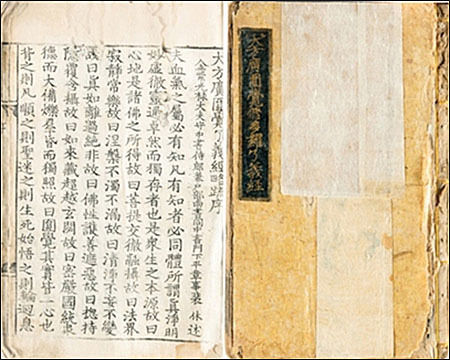 大方廣圓覺脩多羅了義經
大方廣圓覺了義經略疏序
金紫光祿大夫守中書侍郎兼戶部尚書同中書門下平章事裴休述
夫血氣之屬必有知凡有知者必同體所謂眞淨明
妙虛徹靈通卓然而獨存者也是衆生之本源故曰
心地是諸佛之所得故曰菩提交徹融攝故曰法界
寂靜常樂故曰涅槃不濁不漏故曰清淨不妄不變
故曰眞如離過絶非故曰佛性護善遮惡故曰摠持
隱覆含攝故曰如來藏超越玄閟故曰密嚴國統衆
德而大備爍羣昏而獨照故曰圓覺其實皆一心也
背之則凡順之則聖迷之則生死始悟之則輪迴息